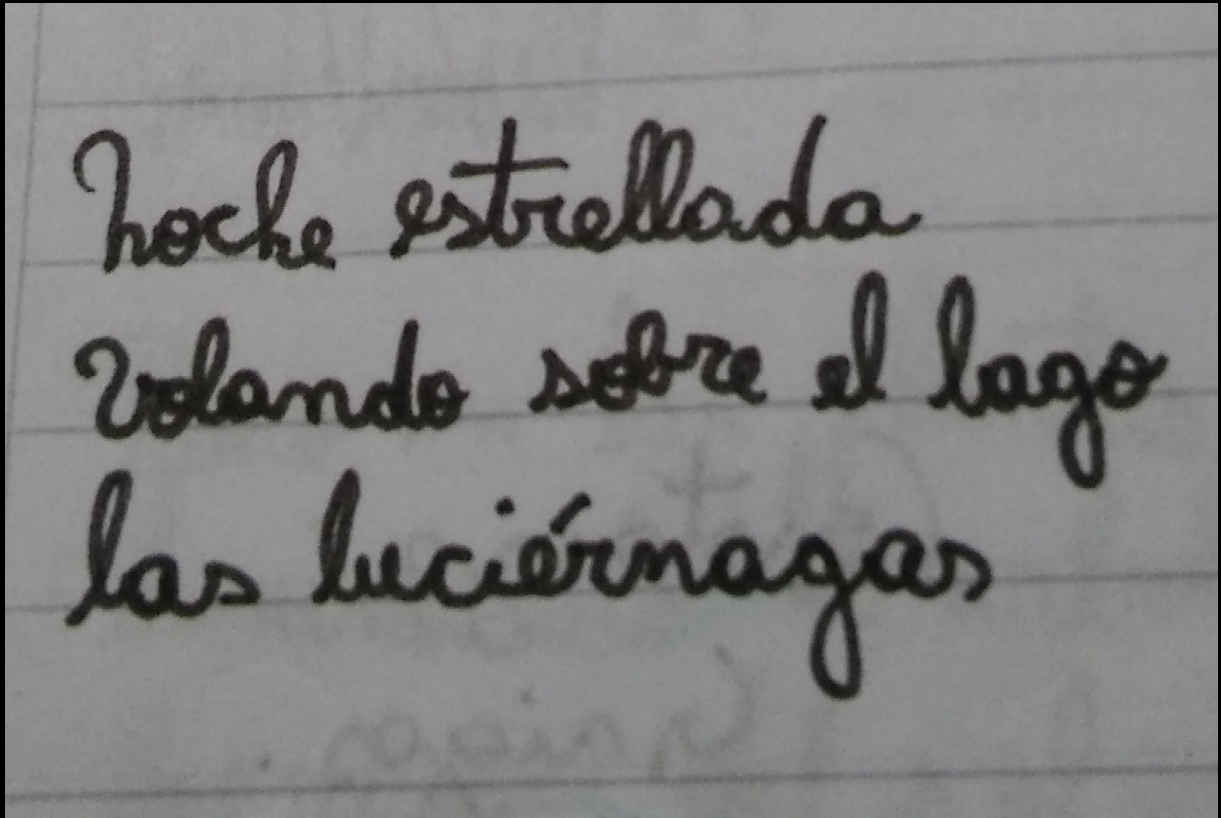 Noche estrellada
Volando sobre el lago
las luciérnagas